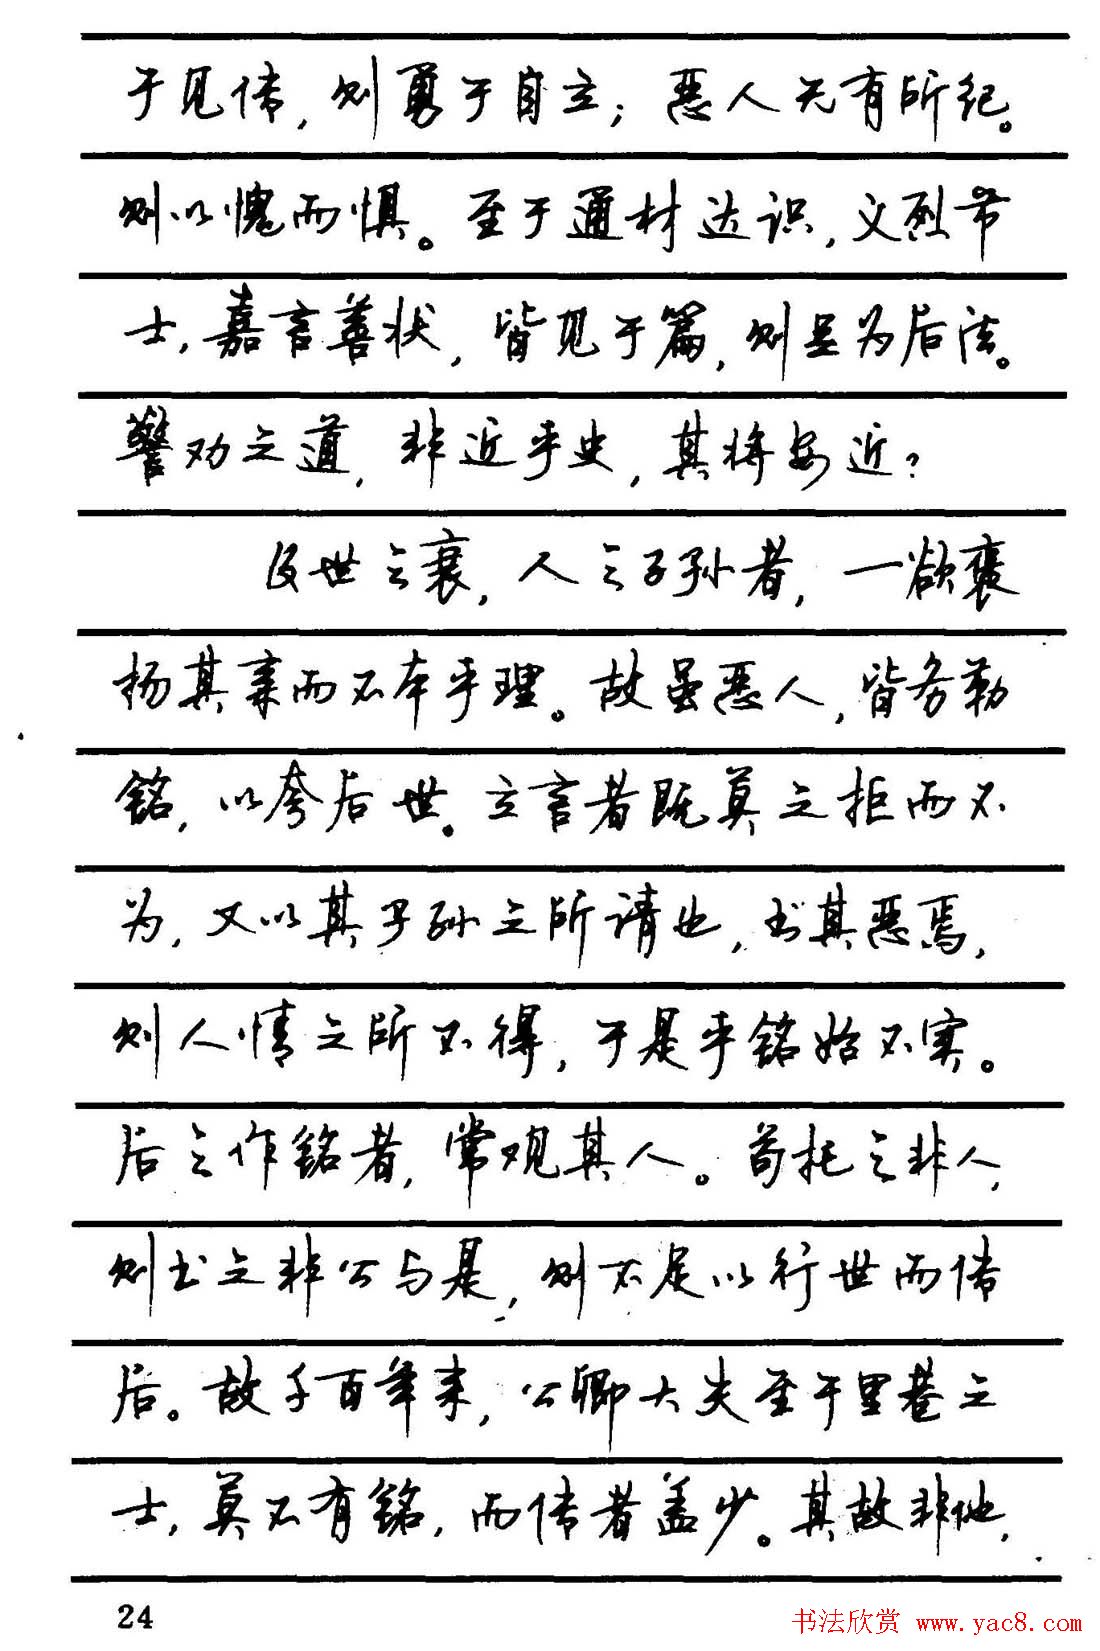 于见传，则勇于自立；恶人无有所纪。
则以愧而惧。至于通材达识，义烈节
士，嘉言善状，皆见于篇，则足为后法。
警劝之道，非近乎史，其将安近？
及世之衰，人之子孙者，一欲褒
扬其亲而不本乎理。故虽恶人，皆务勒
铭，以夸后世。立言者既莫之拒而不
为，又以其子孙之所请也，书其恶焉，
则人情之所不得，于是乎铭始不实。
后之作铭者，常观其人。苟托之非人，
则书之非公与是，则不足以行世而传
后。故千百年来，公卿大夫至于里巷之
士，莫不有铭，而传者盖少。其故非他，
24
书法欣赏 www.yac8.com